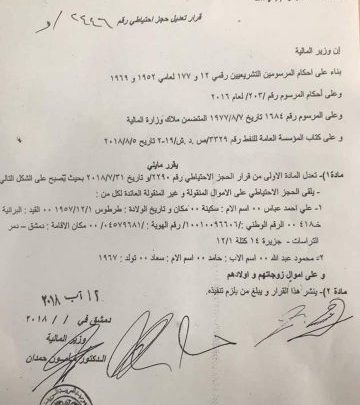 قرار تعديل حجز احتياطي رقم ٢٤٤٦ / و
إن وزير المالية
بناء على احكام المرسومين التشريعيين رقمي ١٢ و ١٧٧ لعامي ١٩٥٢ و ١٩٦٩
وعلى أحكام المرسوم رقم /٢٠٣/ لعام ٢٠١٦
وعلى المرسوم رقم ١٦٨٤ تاريخ ١٩٧٧/٨/٧ المتضمن ملاك وزارة المالية
و على كتاب المؤسسة العامة للنفط رقم ٣٣٢٩/ص .د .ش/١٩-٢ تاريخ ٢٠١٨/٨/٥
يقرر مايلي
مادة١)- تعدل المادة الاولى من قرار الحجز الاحتياطي رقم ٢٢٩٠/و تاريخ ٢٠١٨/٧/٣١ بحيث تصبح على الشكل التالي
- يلقى الحجز الاحتياطي على الاموال المنقولة و غير المنقولة العائدة لكل من :
١-علي احمد عباس ٥٥ اسم الام : سكينة ٥٥ مكان و تاريخ الولادة : طرطوس ١٩٥٧/١٢/١ ٥٥ القيد : البرانية
خ٤١٨ ٥٥ الرقم الوطني :/١٠٠١٠٠٩٦٦٠٦/ رقم الهوية :/٠٤٥٧٩٦٨١/ ٥٥ مكان الاقامة : دمشق – دمر
التراسات - جزيرة ١٤ كتلة ١٢/١
٢-محمود عبد الله ٥٥ اسم الاب : حامد ٥٥ اسم الام : سعاد ٥٥ تولد : ١٩٦٧
و على اموال زوجاتهم و اولادهم
مادة ٢)- ينشر هذا القرار و يبلغ من يلزم لتنفيذه.
١٢ آب ٢٠١٨
دمشق في / / ٢٠١٨
وزير المالية
الدكتور مأمون حمدان